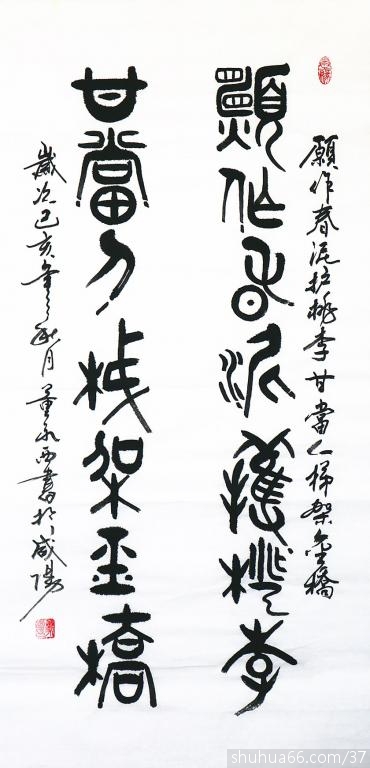 願作春泥护桃李甘當人梯架金橋
願作春泥護桃李
甘當人梯架金橋
歲次己亥年之秋月董永西書於咸陽
shuhua66.com/37